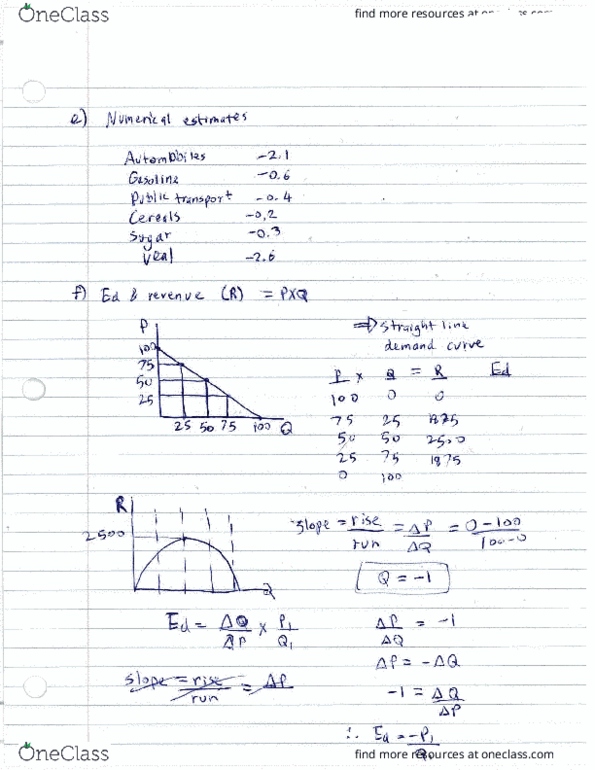 OneClass
find more resources at
e) Numerical estimates
Automobiles -2.1
Gasoline -0.6
Public transport -0.4
Cereals -0,2
Sugar -0.3
Veal -2.6
f) Ed & revenue (R) = PXQ
P
100
75
50
25
25 50 75 100 Q
⇒ Straight line
demand curve
P x Q = R Ed
100 0 0
75 25 1875
50 50 2500
25 75 1875
0 100
R
2500
Q
slope = rise/run = ΔP/ΔQ = 0-100/100-0
Q = -1
Ed = ΔQ/ΔP x P1/Q1
slope = rise/run = ΔP
ΔP/ΔQ = -1
ΔP = -ΔQ
-1 = ΔQ/ΔP
∴ Ed = -P1/Q1
OneClass
find more resources at oneclass.com